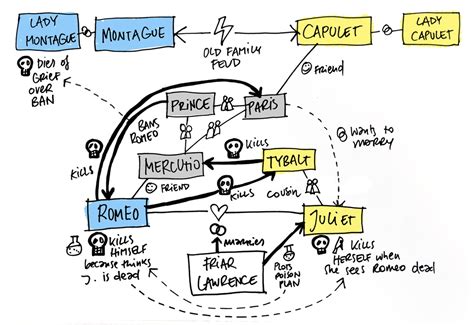 LADY
MONTAGUE
MONTAGUE
OLD FAMILY
FEUD
CAPULET
LADY
CAPULET
Dies of
GRIEF
OVER
BAN
Friend
PRINCE
PARIS
BANS
ROMEO
KILLS
Wants to
marry
MERCUTIO
KILLS
TYBALT
Friend
KILLS
COUSIN
ROMEO
JULIET
KILLS
HIMSELF
because thinks
J. is dead
marries
FRIAR
LAWRENCE
Plots
POISON
PLAN
KILLS
HERSELF when
she sees ROMEO dead